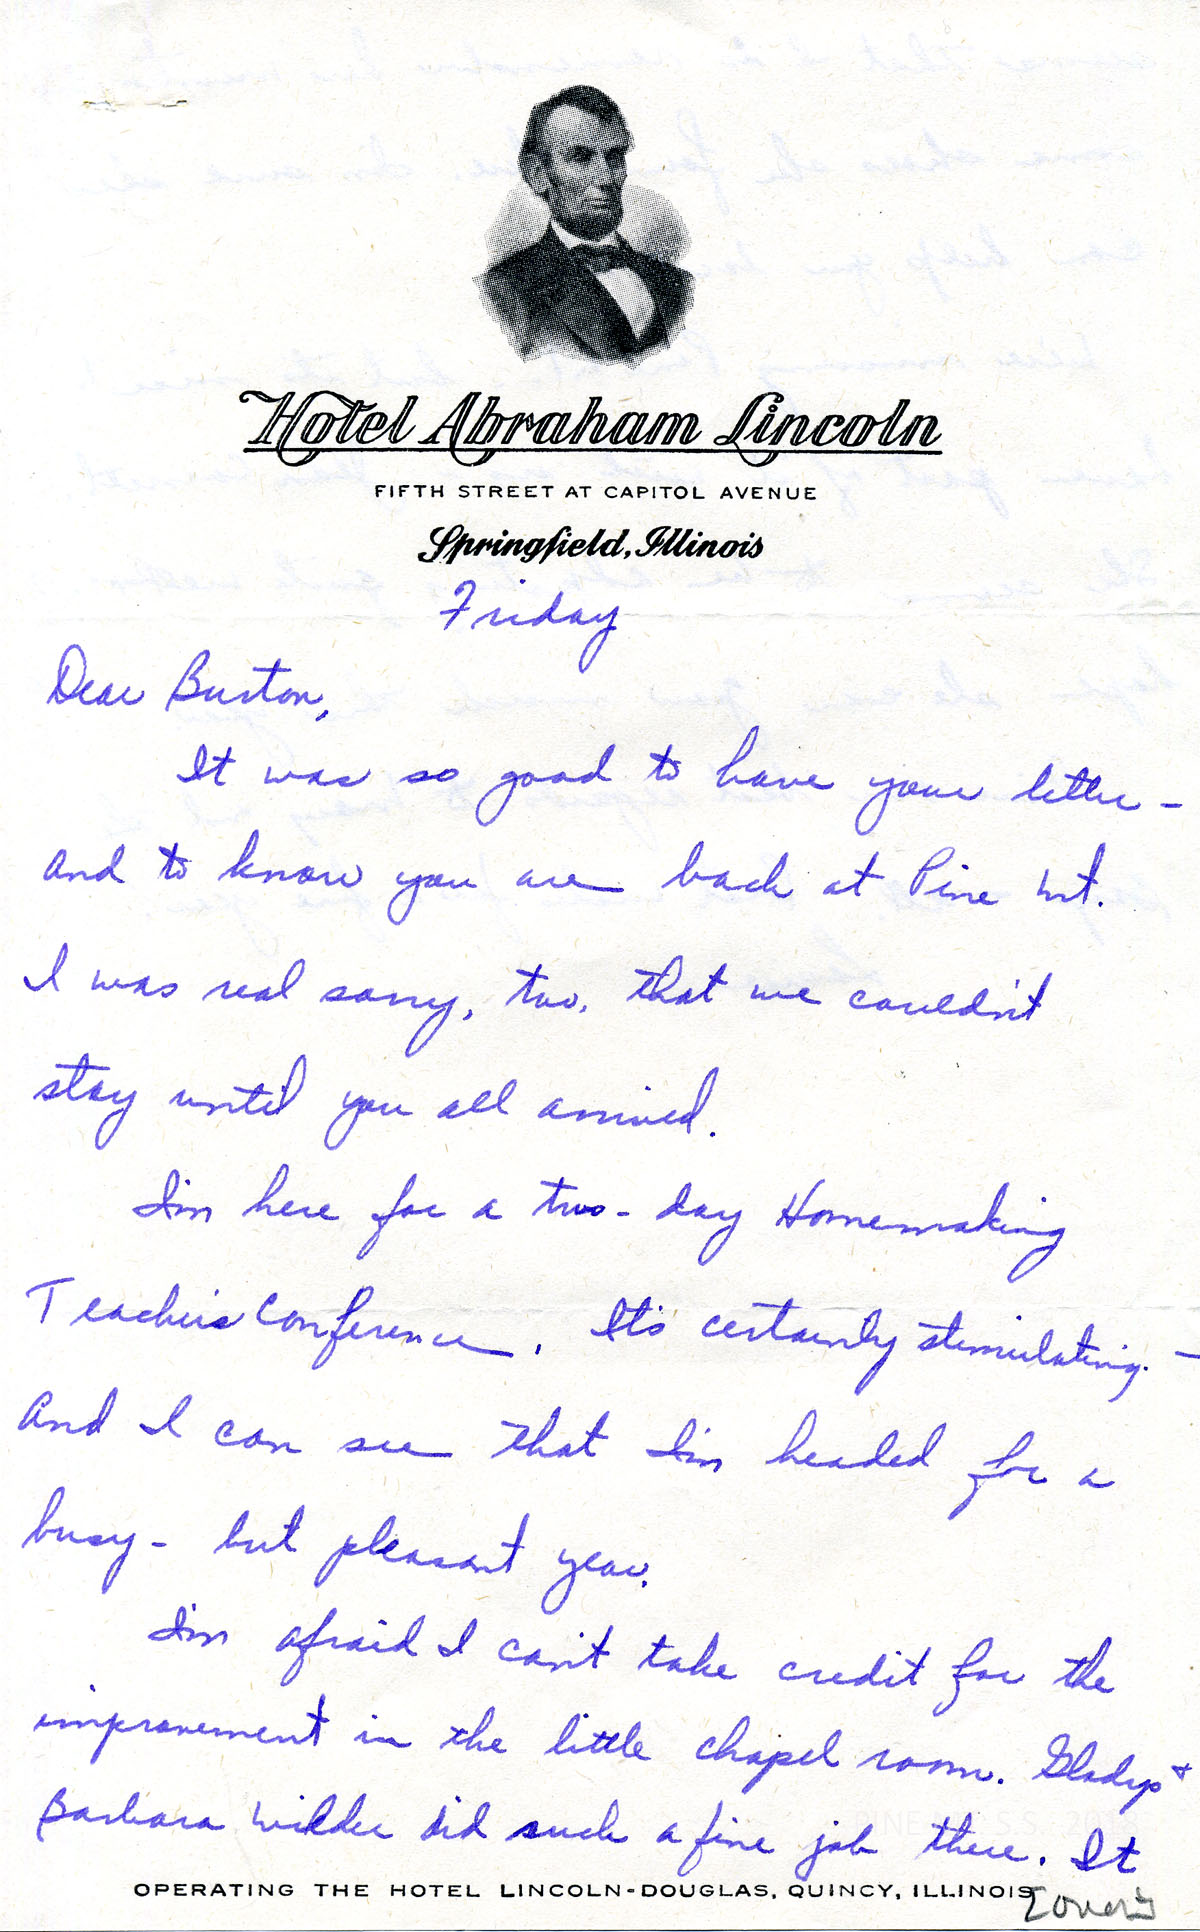 Hotel Abraham Lincoln
FIFTH STREET AT CAPITOL AVENUE
Springfield, Illinois
Friday
Dear Burton,
It was so good to have your letter -
and to know you are back at Pine Mt.
I was real sorry, too, that we couldn't
stay until you all arrived.
I'm here for a two-day Homemaking
Teachers Conference. It's certainly stimulating. -
And I can see that I'm headed for a
busy - but pleasant year.
I'm afraid I can't take credit for the
improvement in the little chapel room. Gladys +
Barbara Wilder did such a fine job there. It
OPERATING THE HOTEL LINCOLN-DOUGLAS, QUINCY, ILLINOIS
[over]